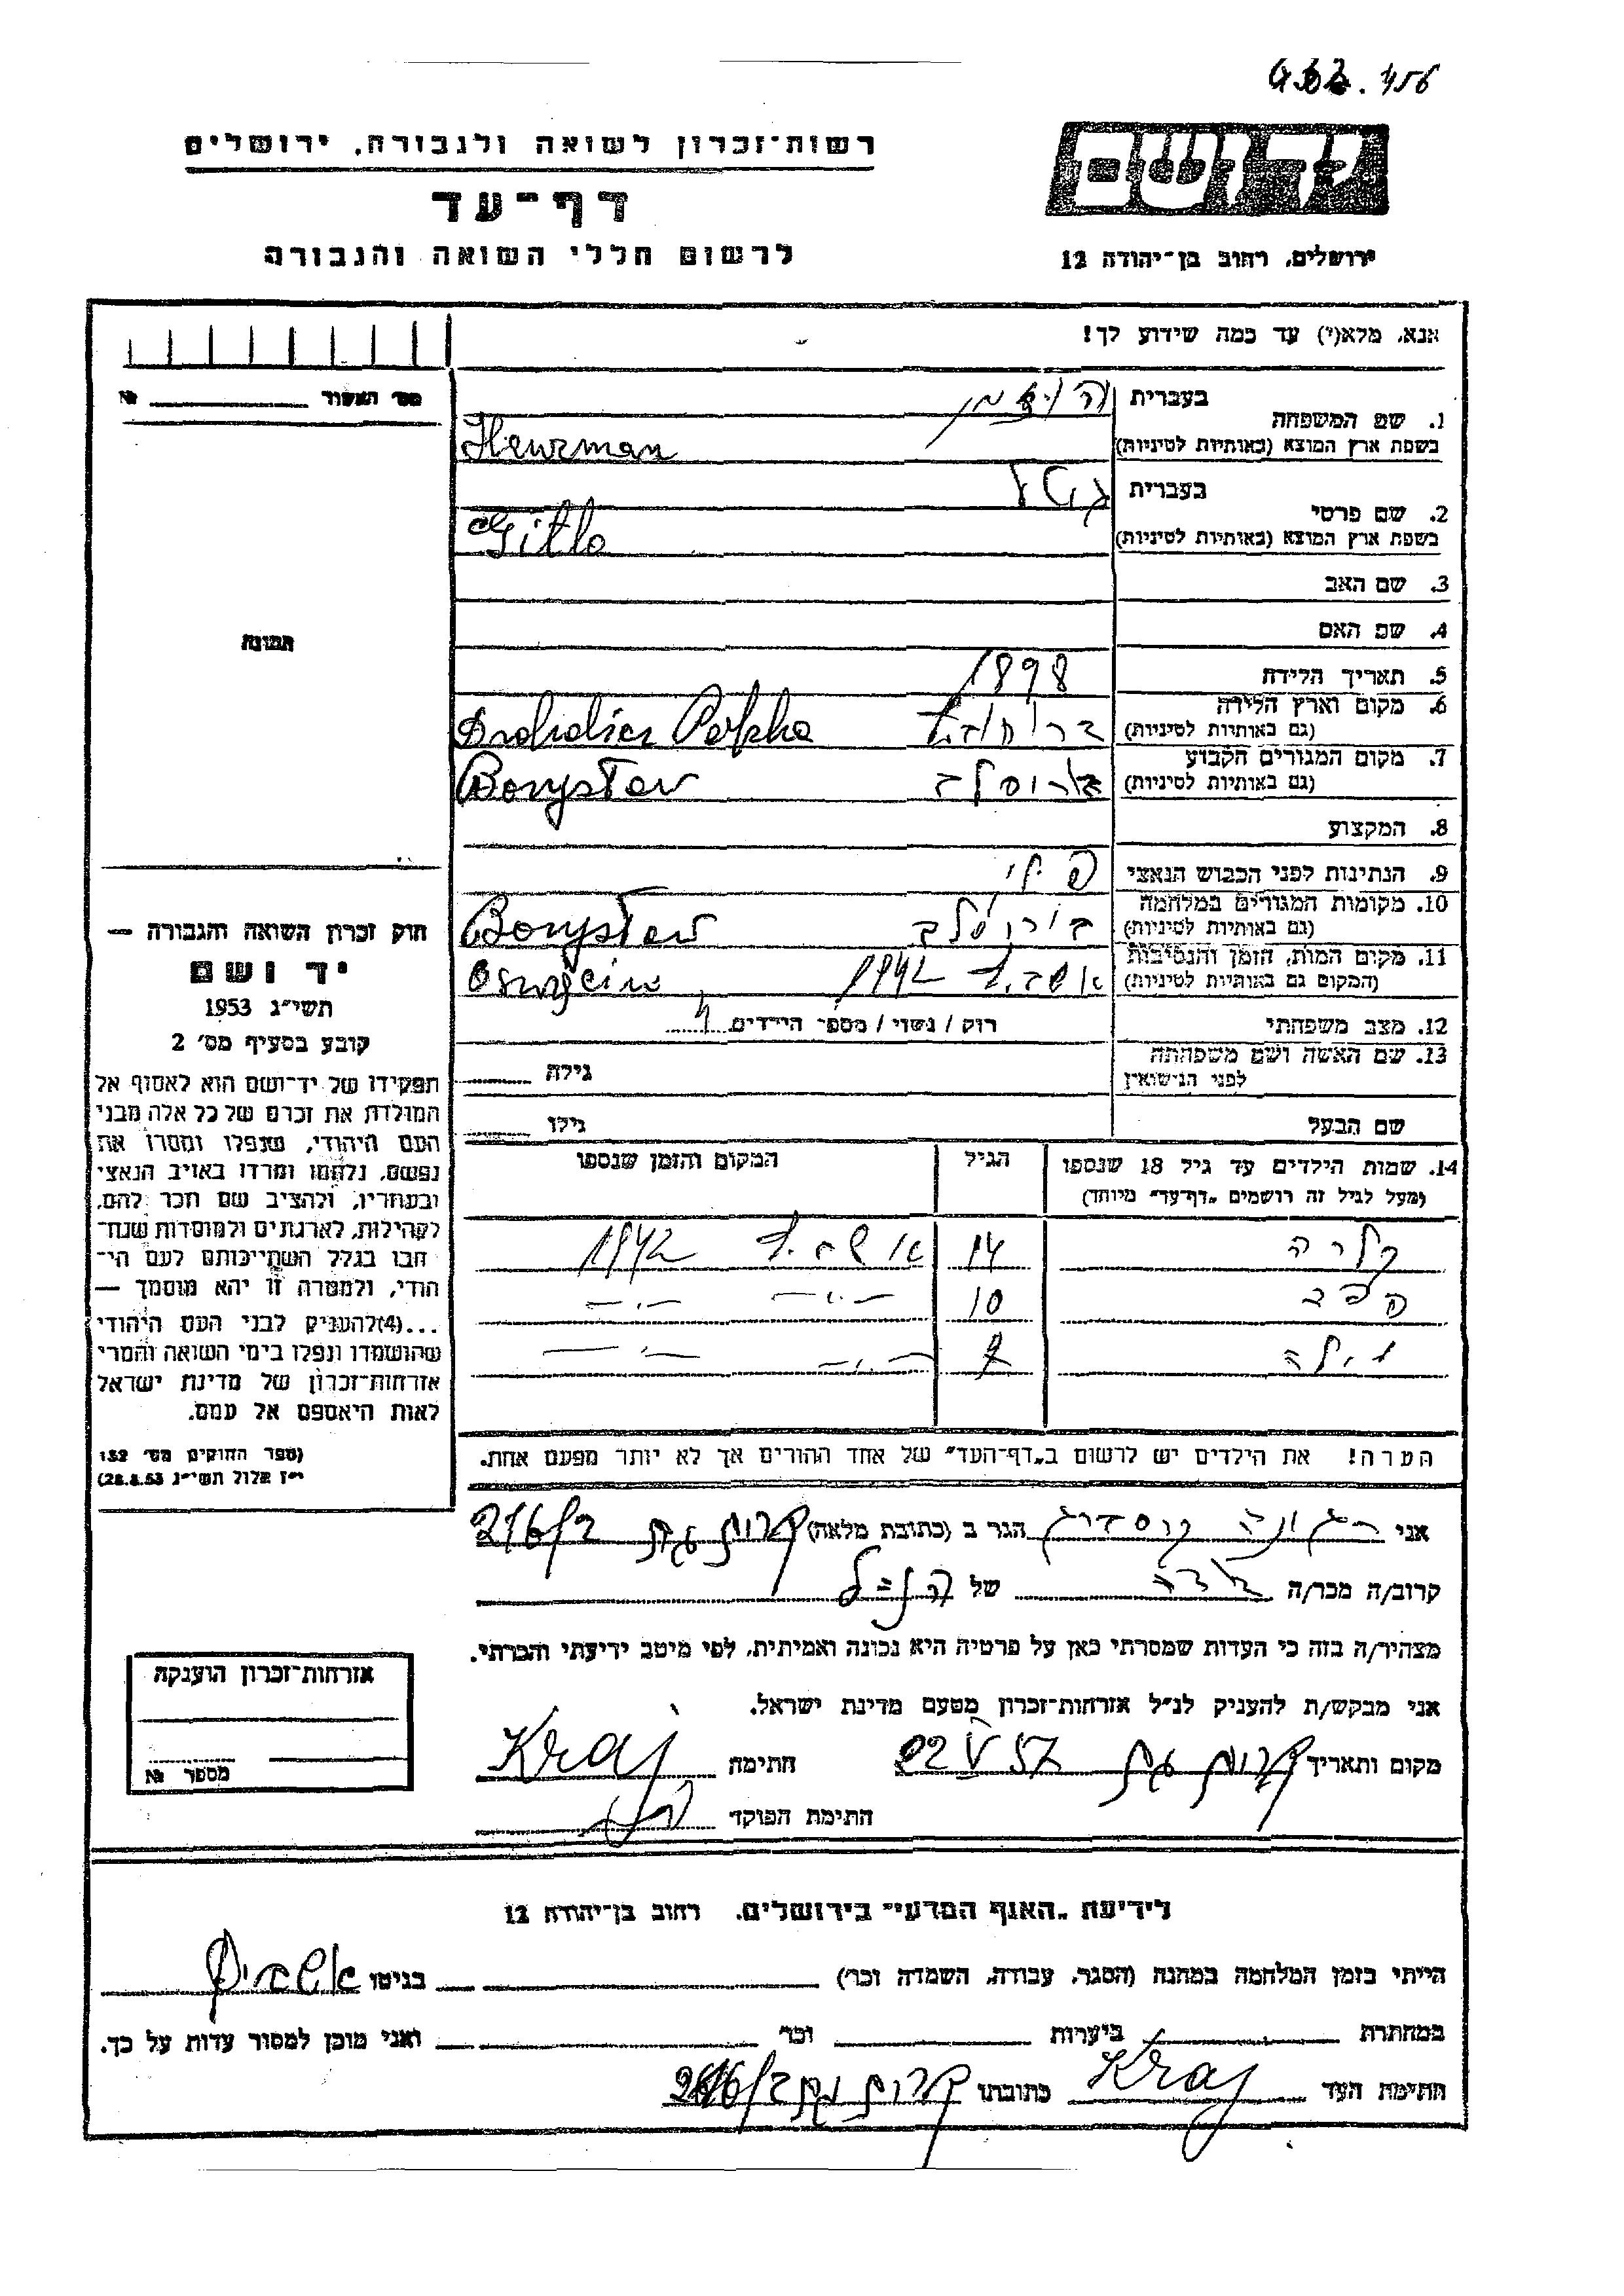 רשות־זכרון לשואה ולגבורה, ירושלים
דף־עד
לרשום חללי השואה והגבורה
ירושלים, רחוב בן־יהודה 12
אנא, מלא(י) עד כמה שידוע לך!
מס׳ האשור № ________
1. שם המשפחה
בעברית
בשפת ארץ המוצא (באותיות לטיניות)
2. שם פרטי
בעברית
בשפת ארץ המוצא (באותיות לטיניות)
Gitla
3. שם האב
4. שם האם
5. תאריך הלידה 1898
6. מקום וארץ הלידה
(גם באותיות לטיניות)
7. מקום המגורים הקבוע
(גם באותיות לטיניות)
Borysław
8. המקצוע
9. הנתינות לפני הכבוש הנאצי
10. מקומות המגורים במלחמה
(גם באותיות לטיניות) בוריסלב Borysław
11. מקום המות, הזמן והנסיבות
(המקום גם באותיות לטיניות) 1942
12. מצב משפחתי רווק / נשוי / מספר הילדים
13. שם האשה ושם משפחתה
לפני הנישואין
גילה
שם הבעל גילו
14. שמות הילדים עד גיל 18 שנספו
(מעל לגיל זה רושמים „דף־עד״ מיוחד)
הגיל
המקום והזמן שנספו
קלרה 14 1942
10
הערה! את הילדים יש לרשום ב„דף־העד״ של אחד ההורים אך לא יותר מפעם אחת.
תמונה
חוק זכרון השואה והגבורה —
יד ושם
תשי״ג 1953
קובע בסעיף מס׳ 2
תפקידו של יד־ושם הוא לאסוף אל
המולדת את זכרם של כל אלה מבני
העם היהודי, שנפלו ומסרו את
נפשם, נלחמו ומרדו באויב הנאצי
ובעוזריו, ולהציב שם וזכר להם,
לקהילות, לארגונים ולמוסדות שנח־
רבו בגלל השתייכותם לעם הי־
הודי, ולמטרה זו יהא מוסמך —
...(4) להעניק לבני העם היהודי
שהושמדו ונפלו בימי השואה והמרי
אזרחות־זכרון של מדינת ישראל
לאות היאספם אל עמם.
(ספר החוקים מס׳ 132
י״ז אלול תשי״ג 28.8.53)
אני הגר ב (כתובת מלאה) קרית גת 216/2
קרוב/ה מכר/ה של
מצהיר/ה בזה כי העדות שמסרתי כאן על פרטיה היא נכונה ואמיתית, לפי מיטב ידיעתי והכרתי.
אני מבקש/ת להעניק לנ״ל אזרחות־זכרון מטעם מדינת ישראל.
מקום ותאריך קרית גת 22 V 57 חתימה Kraj
חתימת הפוקד
אזרחות־זכרון הוענקה
מספר №
לידיעת „האגף המדעי״ בירושלים, רחוב בן־יהודה 12
הייתי בזמן המלחמה במחנה (הסגר, עבודה, השמדה וכו׳) בגיטו
במחתרת ביערות וכו׳ ואני מוכן למסור עדות על כך.
חתימת העד Kraj כתובתו קרית גת